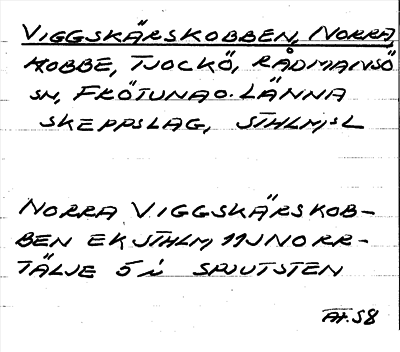 VIGGSKÄRSKOBBEN, NORRA,
KOBBE, TJOCKÖ, RÅDMANSÖ
SN, FRÖTUNA O. LÄNNA
SKEPPSLAG, STHLM;S L
NORRA VIGGSKÄRSKOB-
BEN EK STHLM, 11J NORR-
TÄLJE 5 i SPJUTSTEN
ÄT.58